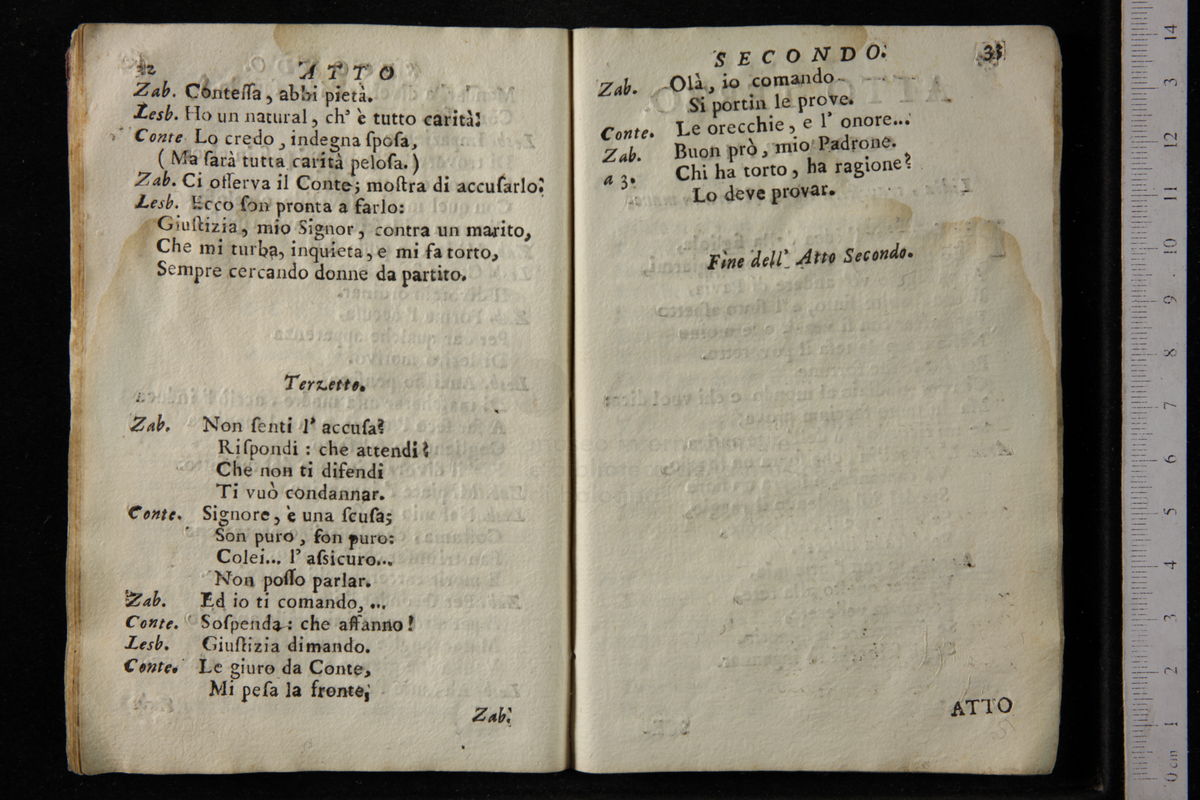 32
ATTO
Zab. Conteſſa, abbi pietà.
Lesb. Ho un natural, ch' è tutto carità!
Conte Lo credo, indegna ſpoſa,
( Ma ſarà tutta carità peloſa. )
Zab. Ci oſſerva il Conte; moſtra di accuſarlo.
Lesb. Ecco ſon pronta a farlo:
Giuſtizia, mio Signor, contra un marito,
Che mi turba, inquieta, e mi fa torto,
Sempre cercando donne da partito.
Terzetto.
Zab. Non ſenti l' accuſa?
Riſpondi : che attendi?
Che non ti difendi
Ti vuò condannar.
Conte. Signore, è una ſcuſa;
Son puro, ſon puro:
Colei... l' aſsicuro...
Non poſſo parlar.
Zab. Ed io ti comando, ...
Conte. Soſpenda : che affanno!
Lesb. Giuſtizia dimando.
Conte. Le giuro da Conte,
Mi peſa la fronte;
Zab.
SECONDO.
33
Zab. Olà, io comando
Si portin le prove.
Conte. Le orecchie, e l' onore...
Zab. Buon prò, mio Padrone.
a 3. Chi ha torto, ha ragione?
Lo deve provar.
Fine dell' Atto Secondo.
ATTO
0 cm 1 2 3 4 5 6 7 8 9 10 11 12 13 14